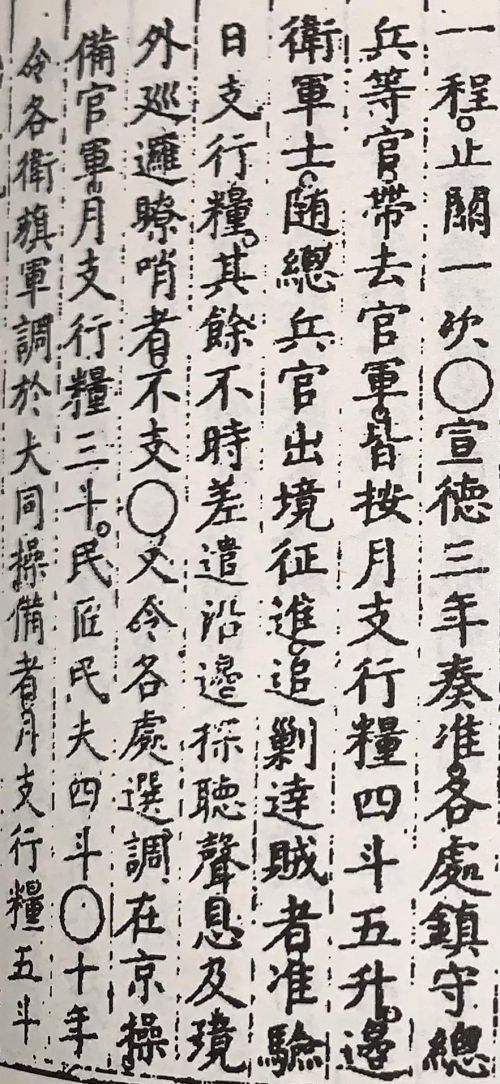 一程。止關一次○宣德三年奏准。各處鎮守總
兵等官。帶去官軍。皆按月支行糧四斗五升。邊
衛軍士。随總兵官出境征進。追剿逹賊者准驗
日支行糧。其餘不時差遣沿邊探聽聲息及境
外廵邏瞭哨者。不支○又令各處選調在京操
備官軍。月支行糧三斗。民匠民夫四斗○十年
令各衛旗軍調於大同操備者。月支行糧五斗